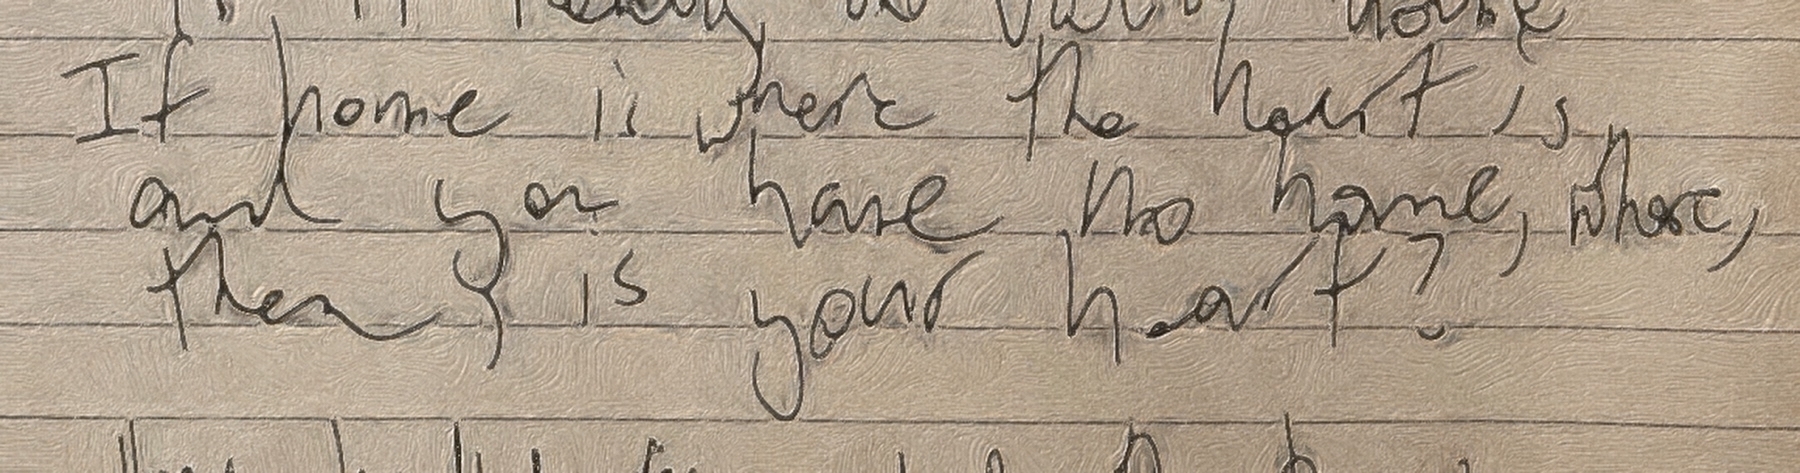 If home is where the heart is
and you have no home, where,
then, is your heart?